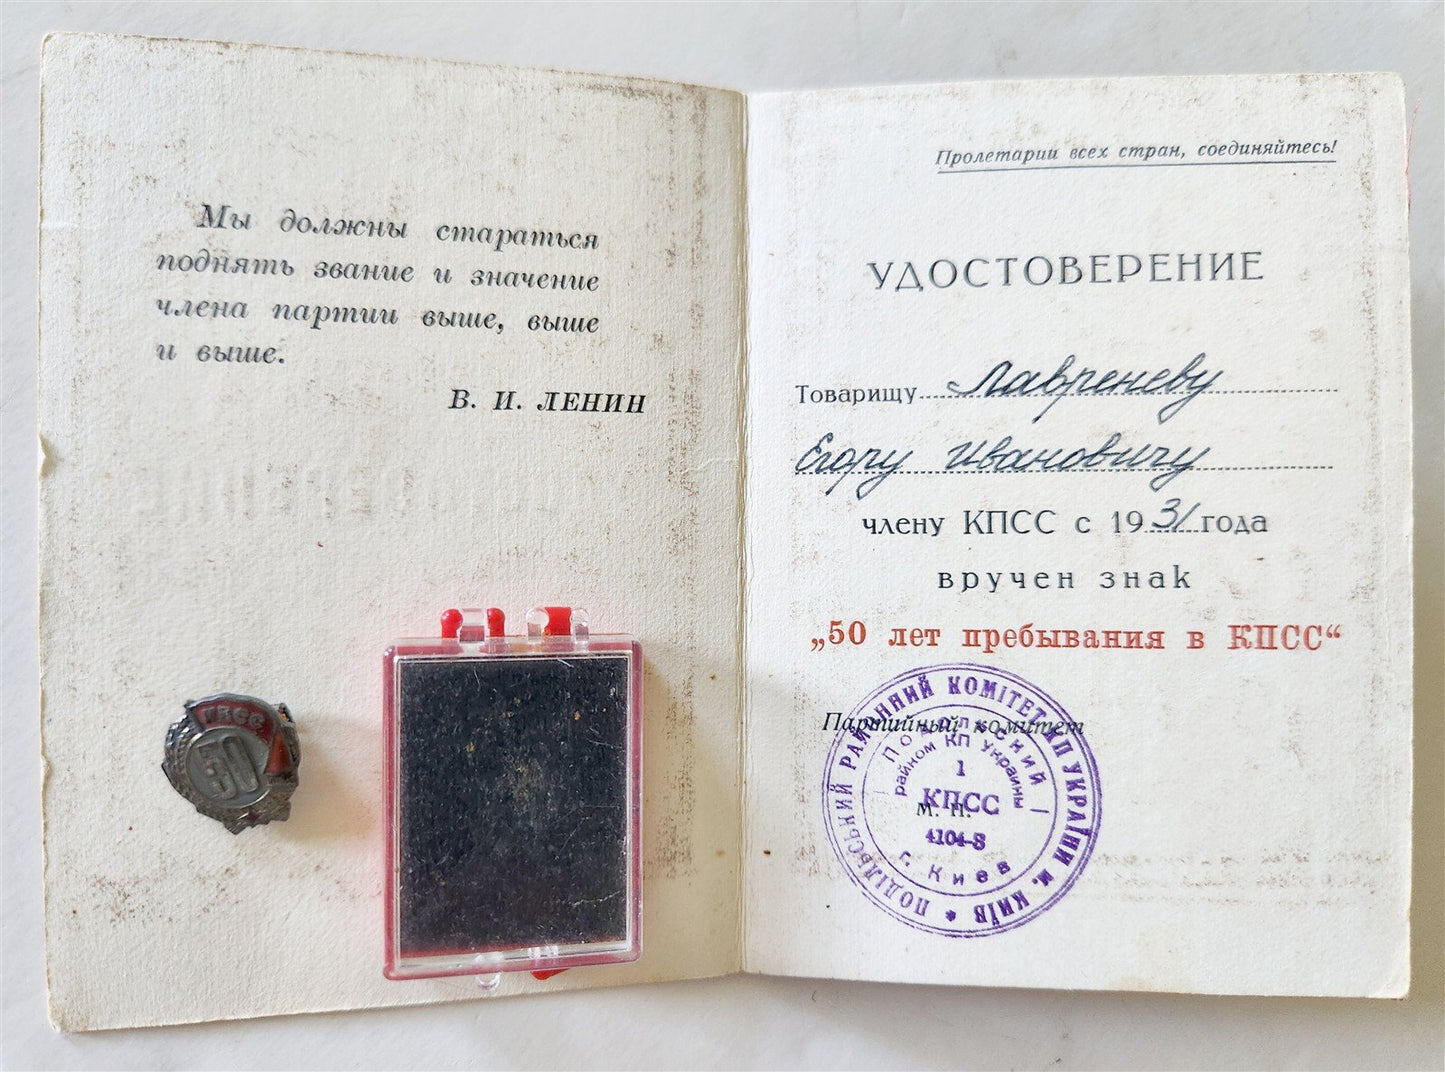 Мы должны стараться
поднять звание и значение
члена партии выше, выше
и выше.
В. И. ЛЕНИН
КПСС
50
Пролетарии всех стран, соединяйтесь!
УДОСТОВЕРЕНИЕ
Товарищу Лавреневу
Егору Ивановичу
члену КПСС с 1931 года
вручен знак
„50 лет пребывания в КПСС“
Партийный комитет
М. П.
ПОДІЛЬСЬКИЙ РАЙОННИЙ КОМІТЕТ КП УКРАЇНИ м. КИЇВ *
Подольский
райком КП Украины
1
КПСС
4104-8
г. Киев